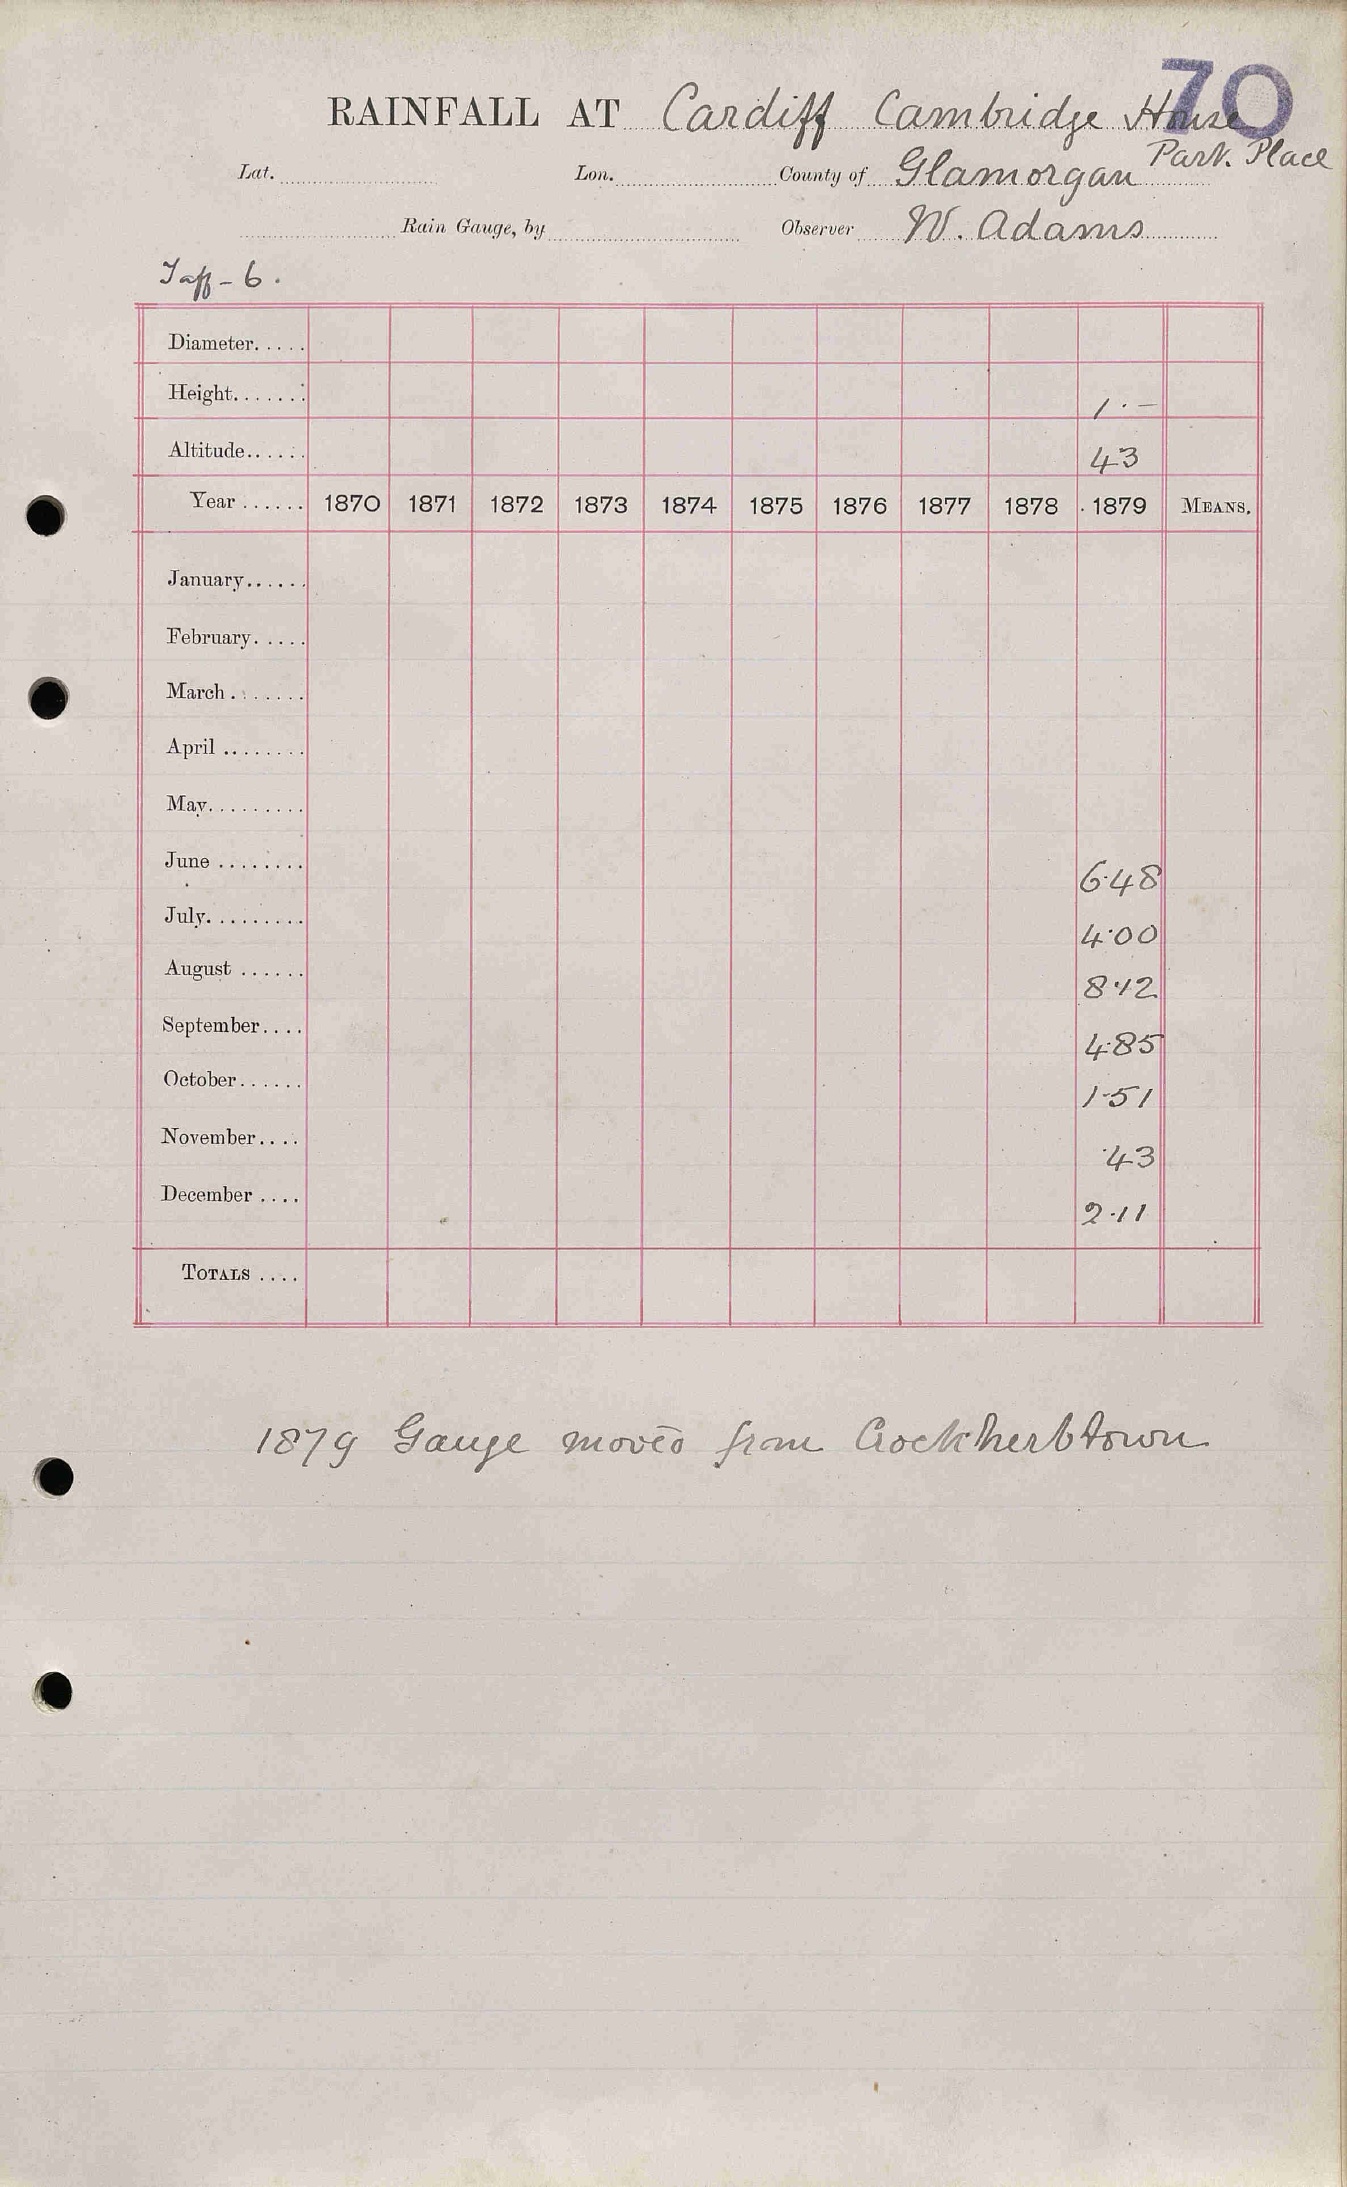 70
RAINFALL AT Cardiff Cambridge House
Park Place
Lat. Lon. County of Glamorgan
Rain Gauge, by Observer W. Adams
Taff - 6.
Diameter.....
Height....... 1·—
Altitude...... 43
Year ...... 1870 1871 1872 1873 1874 1875 1876 1877 1878 1879 MEANS.
January......
February.....
March .......
April ........
May.........
June ........ 6·48
July......... 4·00
August ...... 8·12
September.... 4·85
October...... 1·51
November.... ·43
December .... 2·11
TOTALS ....
1879 Gauge moved from Crockherbtown